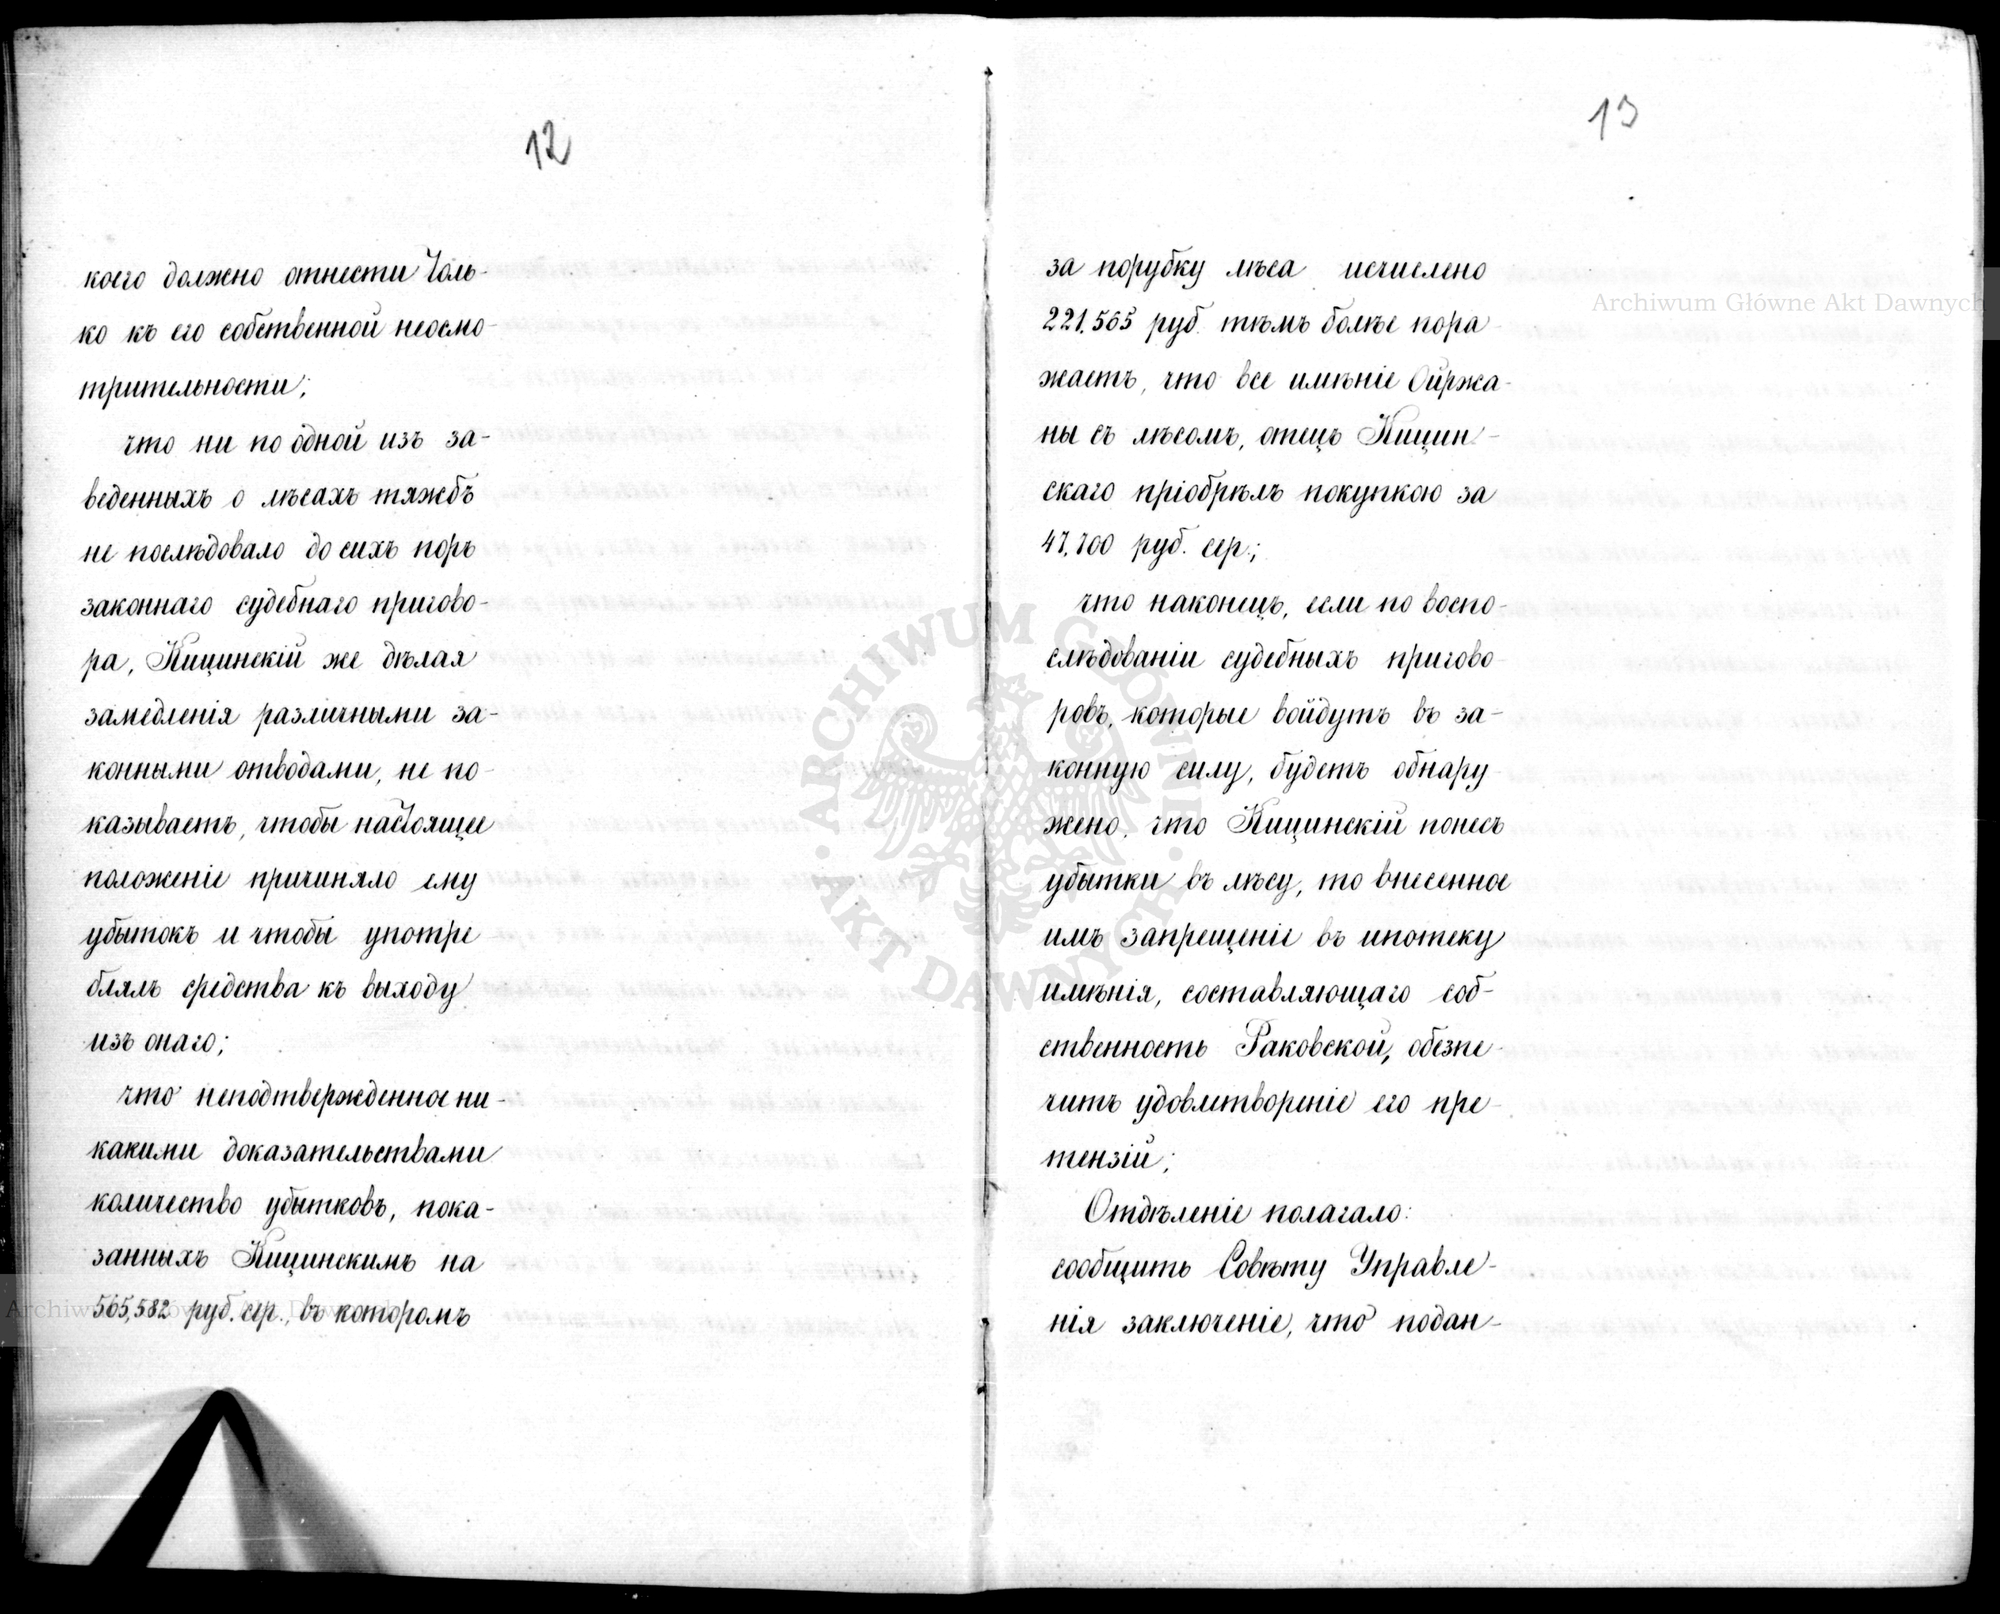 12
коего должно отнести толь-
ко къ его собственной неосмо-
трительности;
что ни по одной изъ за-
веденныхъ о лѣсахъ тяжбъ
не послѣдовало до сихъ поръ
законнаго судебнаго пригово-
ра, Кицинскій же дѣлая
замедленія различными за-
конными отводами, не по-
казываетъ, чтобы настоящее
положеніе причиняло ему
убытокъ и чтобы употре-
блялъ средства къ выходу
изъ онаго;
что неподтвержденное ни-
какими доказательствами
количество убытковъ, пока-
занныхъ Кицинскимъ на
565,582 руб. сер., въ которомъ
13
за порубку лѣса исчислено
221.565 руб. тѣмъ болѣе пора-
жаетъ, что все имѣніе Ойржа-
ны съ лѣсомъ, отецъ Кицин-
скаго пріобрѣлъ покупкою за
47,700 руб. сер.;
что наконецъ, если по воспо-
слѣдованіи судебныхъ пригово-
ровъ, которые войдутъ въ за-
конную силу, будетъ обнару-
жено, что Кицинскій понесъ
убытки въ лѣсу, то внесенное
имъ запрещеніе въ ипотеку
имѣнія, составляющаго соб-
ственность Раковской, обезпе-
читъ удовлетвореніе его пре-
тензій;
Отдѣленіе полагало:
сообщить Совѣту Управле-
нія заключеніе, что подан-
Archiwum Główne Akt Dawnych
ARCHIWUM GŁÓWNE
AKT DAWNYCH
Archiwum Główne Akt Dawnych